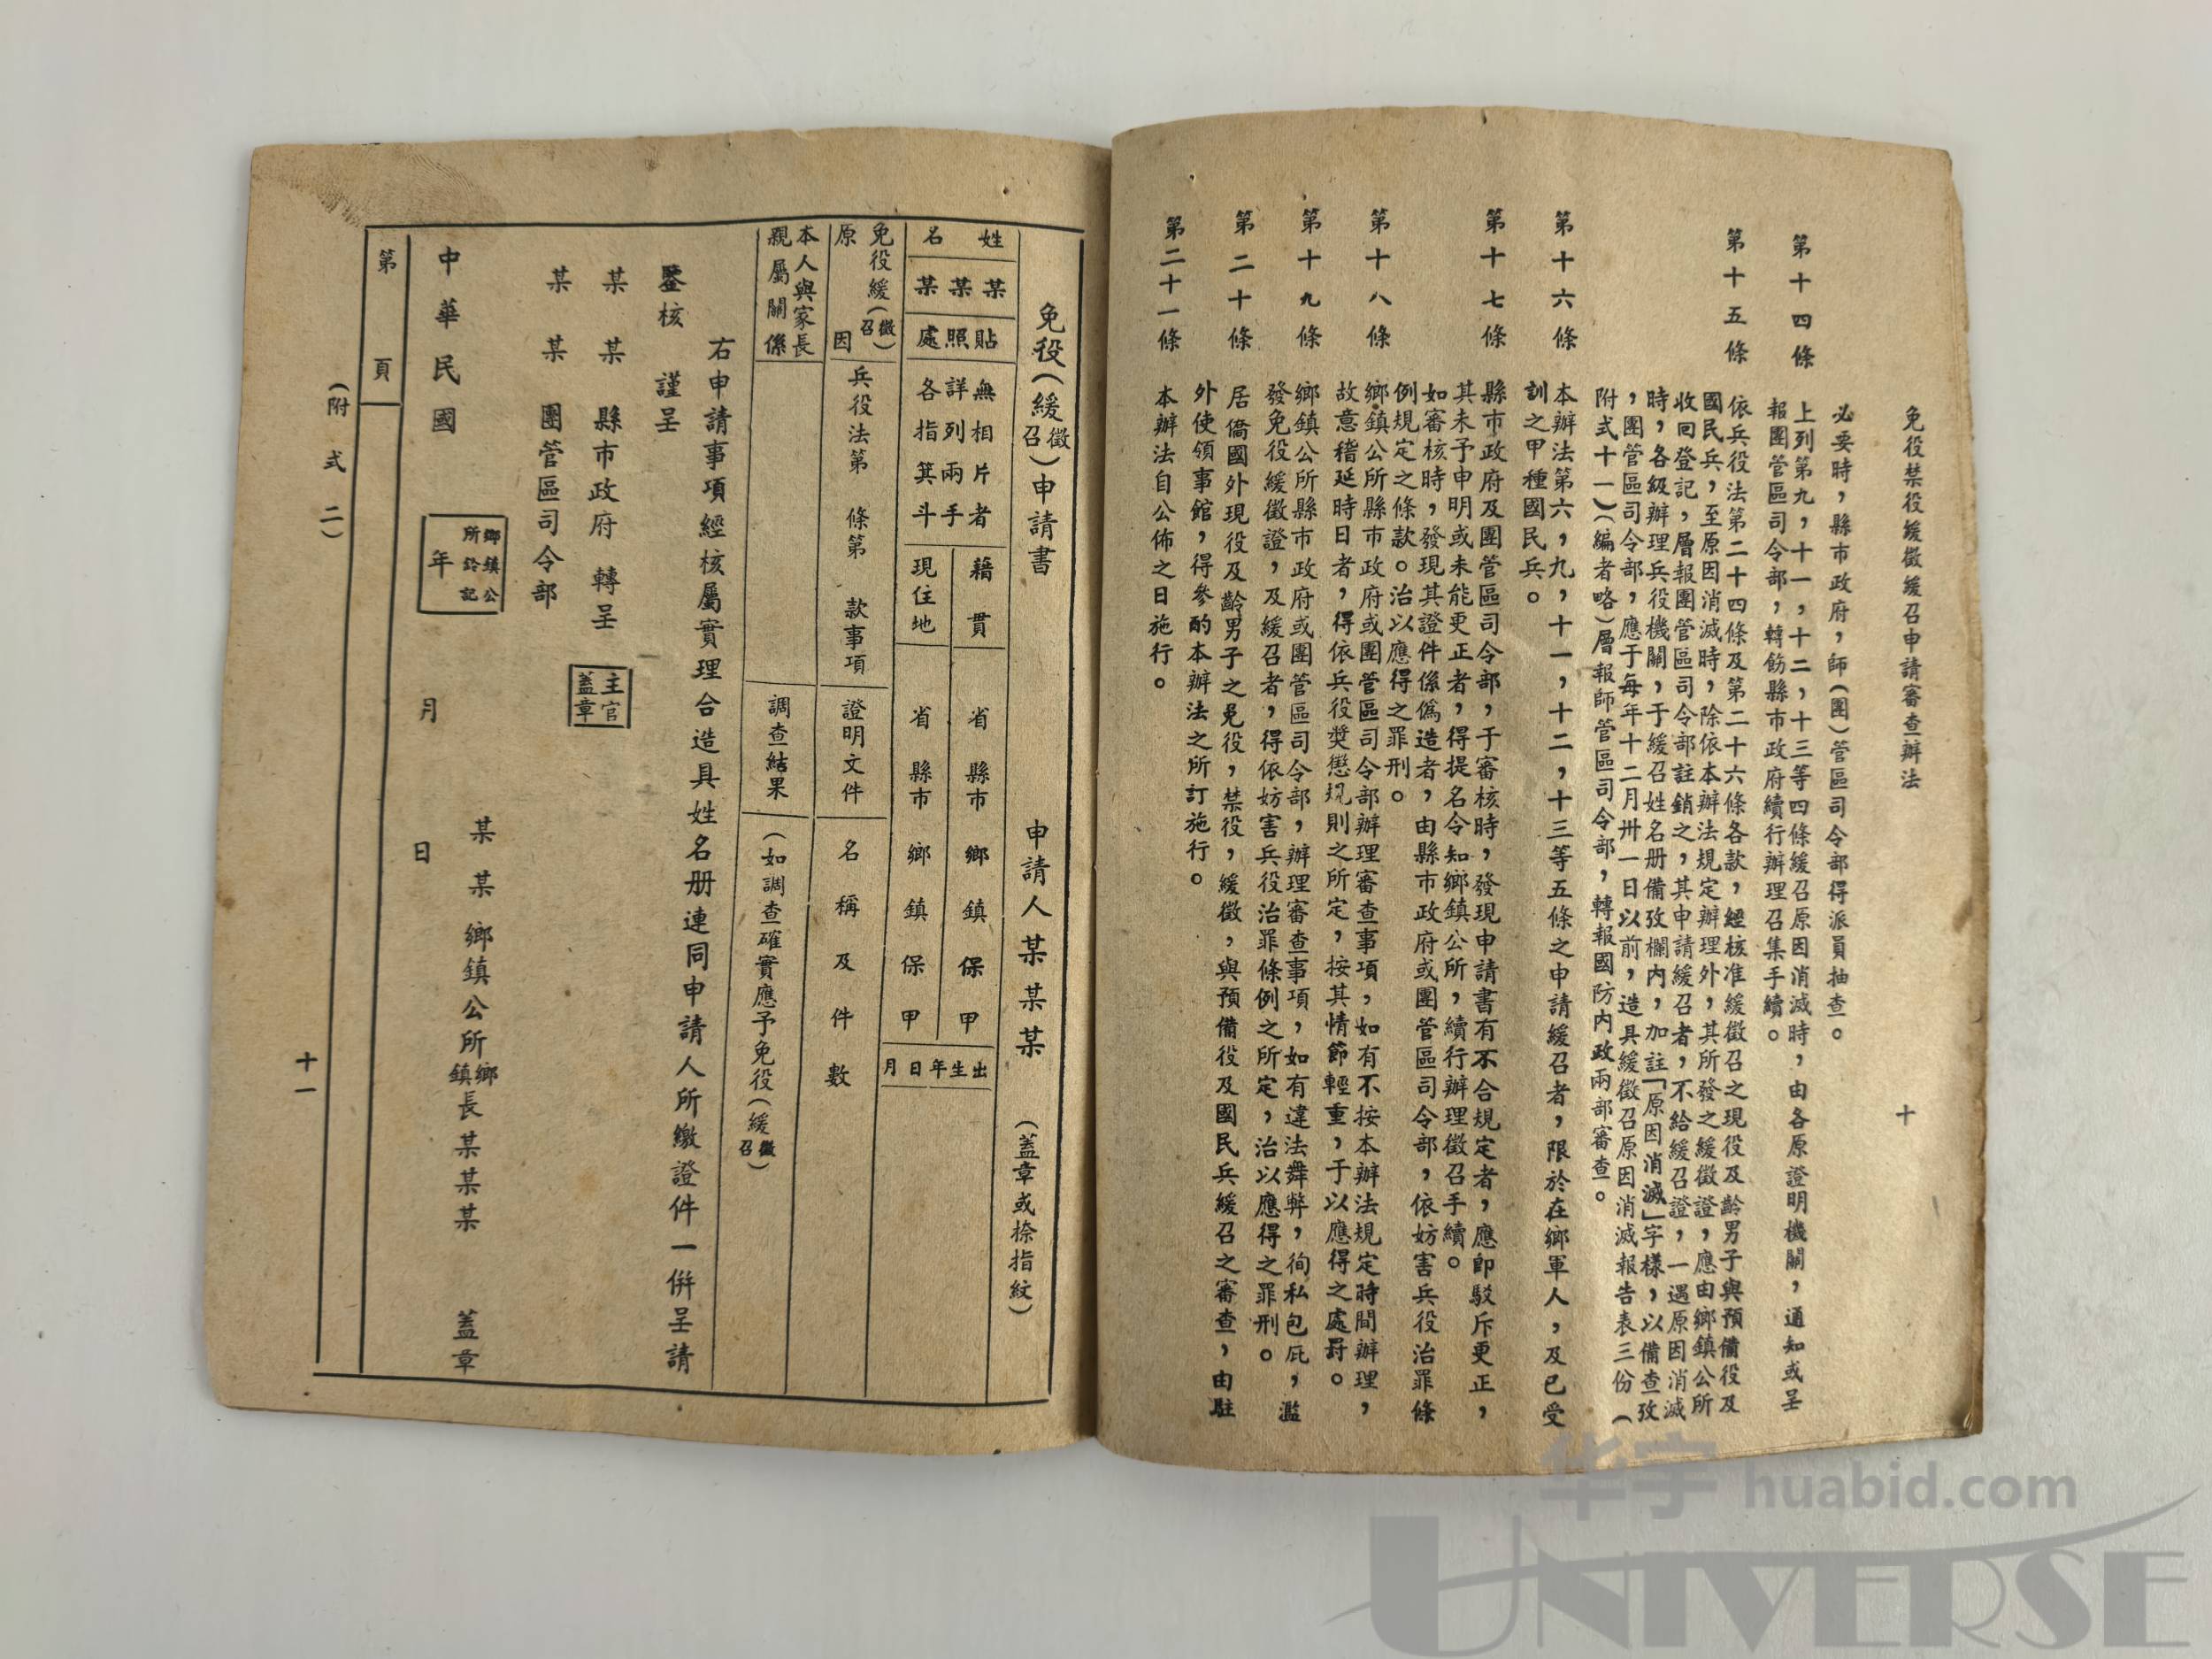 免役禁役緩徵緩召申請審查辦法
十
必要時，縣市政府，師（團）管區司令部得派員抽查。
第十四條
上列第九，十一，十二，十三等四條緩召原因消滅時，由各原證明機關，通知或呈
報團管區司令部，轉飭縣市政府續行辦理召集手續。
第十五條
依兵役法第二十四條及第二十六條各款，經核准緩徵召之現役及齡男子與預備役及
國民兵，至原因消滅時，除依本辦法規定辦理外，其所發之緩徵證，應由鄉鎮公所
收回登記，層報團管區司令部註銷之，其申請緩召者，不給緩召證，一遇原因消滅
時，各級辦理兵役機關，于緩召姓名册備攷欄內，加註「原因消滅」字樣，以備查攷
，團管區司令部，應于每年十二月卅一日以前，造具緩徵召原因消滅報告表三份（
附式十一）（編者略）層報師管區司令部，轉報國防內政兩部審查。
第十六條
本辦法第六，九，十一，十二，十三等五條之申請緩召者，限於在鄉軍人，及已受
訓之甲種國民兵。
第十七條
縣市政府及團管區司令部，于審核時，發現申請書有不合規定者，應即駁斥更正，
其未予申明或未能更正者，得提名令知鄉鎮公所，續行辦理徵召手續。
如審核時，發現其證件係僞造者，由縣市政府或團管區司令部，依妨害兵役治罪條
例規定之條款。治以應得之罪刑。
第十八條
鄉鎮公所縣市政府或團管區司令部辦理審查事項，如有不按本辦法規定時間辦理，
故意稽延時日者，得依兵役奬懲規則之所定，按其情節輕重，于以應得之處罸。
第十九條
鄉鎮公所縣市政府或團管區司令部，辦理審查事項，如有違法舞弊，徇私包庇，濫
發免役緩徵證，及緩召者，得依妨害兵役治罪條例之所定，治以應得之罪刑。
第二十條
居僑國外現役及齡男子之免役，禁役，緩徵，與預備役及國民兵緩召之審查，由駐
外使領事館，得參酌本辦法之所訂施行。
第二十一條
本辦法自公佈之日施行。
免役（緩徵召）申請書
申請人某某某
（蓋章或捺指紋）
姓名
某某某
貼照處
無相片者
詳列兩手
各指箕斗
籍貫
省縣市鄉鎮保甲
現住地
省縣市鄉鎮保甲
出生年日月
免役緩（徵召）
原因
兵役法第 條第 款事項
證明文件
名稱及件數
本人與家長
親屬關係
調查結果
（如調查確實應予免役（緩徵召）
右申請事項經核屬實理合造具姓名册連同申請人所繳證件一倂呈請
鑒核 謹呈
某某縣市政府 轉呈
主官蓋章
某某團管區司令部
某某鄉鎮公所鄉鎮長某某某 蓋章
中華民國 年 月 日
鄉鎮公所鈐記
第 頁
（附式二）
十一
华宇 huabid.com
UNIVERSE